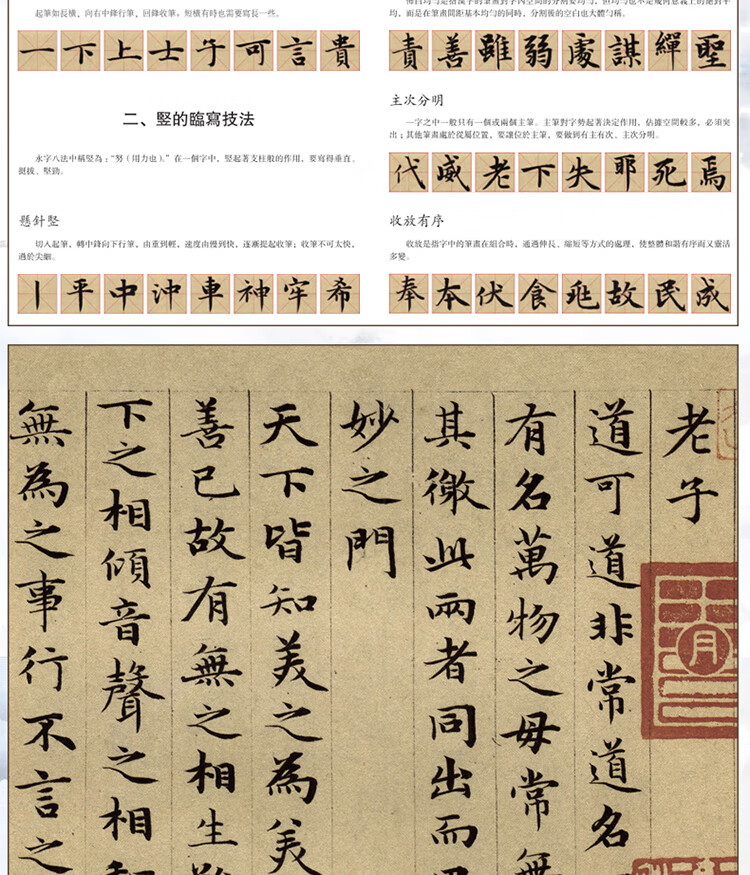 起筆如長橫，向右中鋒行筆，回鋒收筆。短橫有時也需要寫長一些。
一下上士子可言貴
二、堅的臨寫技法
永字八法中稱竪為：“努（用力也）。”在一個字中，竪起著支柱般的作用，要寫得垂直、
挺拔、堅勁。
懸針竪
切入起筆，轉中鋒向下行筆，由重到輕，速度由慢到快，逐漸提起收筆；收筆不可太快，
過於尖細。
丨平中沖車神牢希
均，而是在筆畫間距基本均勻的同時，分割後的空白也大體勻稱。
責善雖弱處謀繟聖
主次分明
一字之中一般只有一個或兩個主筆。主筆對字勢起著決定作用，佔據空間較多，必須突
出；其他筆畫處於從屬位置，要讓位於主筆，要做到有主有次、主次分明。
代威老下失耶死焉
收放有序
收放是指字中的筆畫在組合時，通過伸長、縮短等方式的處理，使整體和諧有序而又靈活
多變。
奉本伏食兆故民成
老子
道可道非常道名
有名萬物之母常無
其徼此兩者同出而
妙之門
天下皆知美之為美
善已故有無之相生
下之相傾音聲之相
無為之事行不言之
月